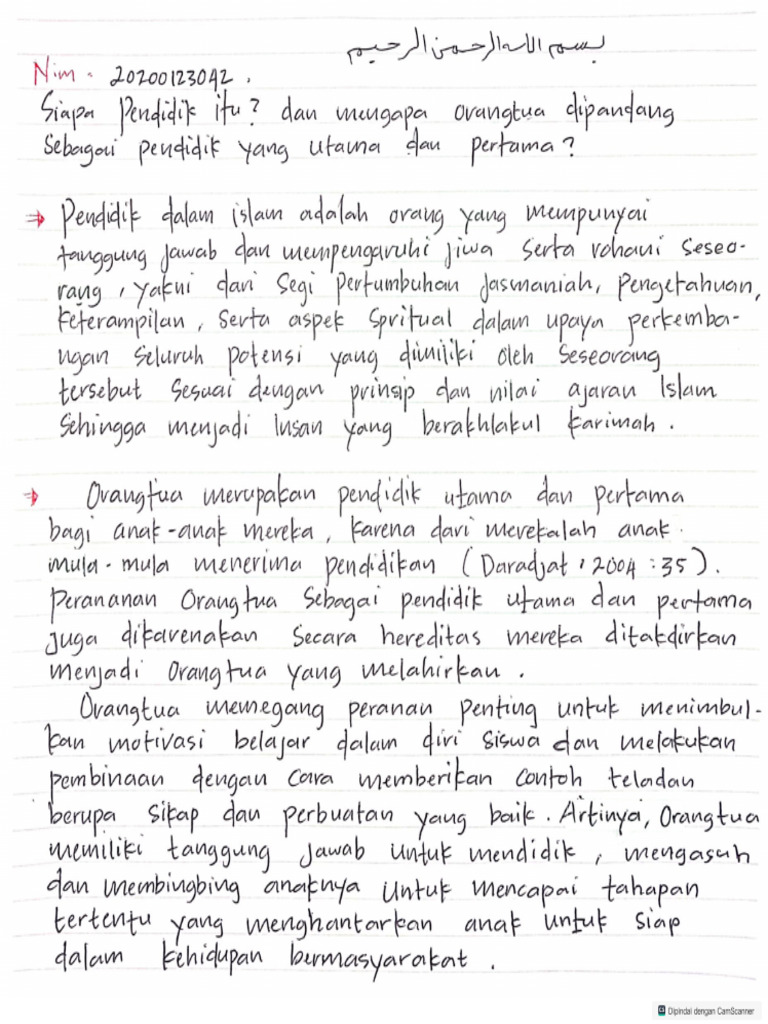 بسم الله الرحمن الرحيم
Nim - 20200123042.
Siapa Pendidik itu? dan mengapa orangtua dipandang
Sebagai pendidik yang utama dan pertama?
⇒ Pendidik dalam islam adalah orang yang mempunyai
tanggung jawab dan mempengaruhi jiwa serta rohani seseo-
rang, yakni dari Segi Pertumbuhan Jasmaniah, Pengetahuan,
Keterampilan, Serta aspek Spritual dalam upaya perkemba-
ngan seluruh potensi yang dimiliki oleh Seseorang
tersebut Sesuai dengan prinsip dan nilai ajaran Islam
Sehingga menjadi Insan yang berakhlakul karimah.
⇒ Orangtua merupakan pendidik utama dan pertama
bagi anak-anak mereka, karena dari merekalah anak
mula-mula menerima pendidikan (Daradjat, 2004 : 35).
Perananan Orangtua Sebagai pendidik utama dan pertama
juga dikarenakan Secara hereditas mereka ditakdirkan
menjadi Orangtua yang melahirkan.
Orangtua memegang peranan penting untuk menimbul-
kan motivasi belajar dalam diri siswa dan melakukan
pembinaan dengan cara memberikan contoh teladan
berupa sikap dan perbuatan yang baik. Artinya, Orangtua
memiliki tanggung jawab untuk mendidik, mengasuh
dan membingbing anaknya untuk mencapai tahapan
tertentu yang menghantarkan anak untuk siap
dalam kehidupan bermasyarakat.
CS Dipindai dengan CamScanner